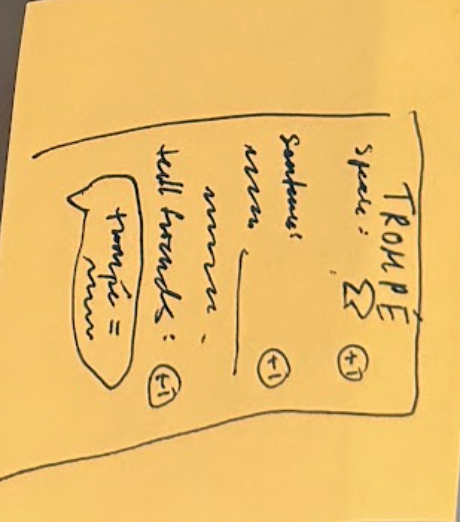 TROMPÉ
Speak: +1
Sentence:
+1
tell friends: +1
trompé =